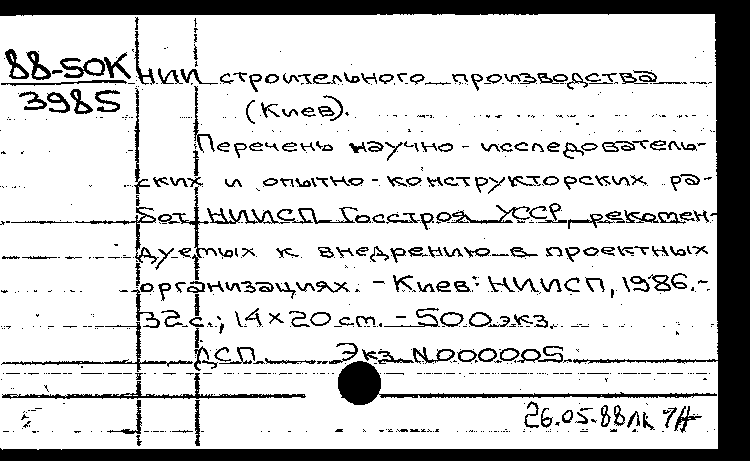 88-50К
3985
НИИ строительного производства
(Киев).
Перечень научно-исследователь-
ских и опытно-конструкторских ра-
бот НИИСП Госстроя УССР, рекомен-
дуемых к внедрению в проектных
организациях. - Киев: НИИСП, 1986.-
32 с.; 14×20 cm. - 500 экз.
ДСП. Экз. N000005
26.05.88